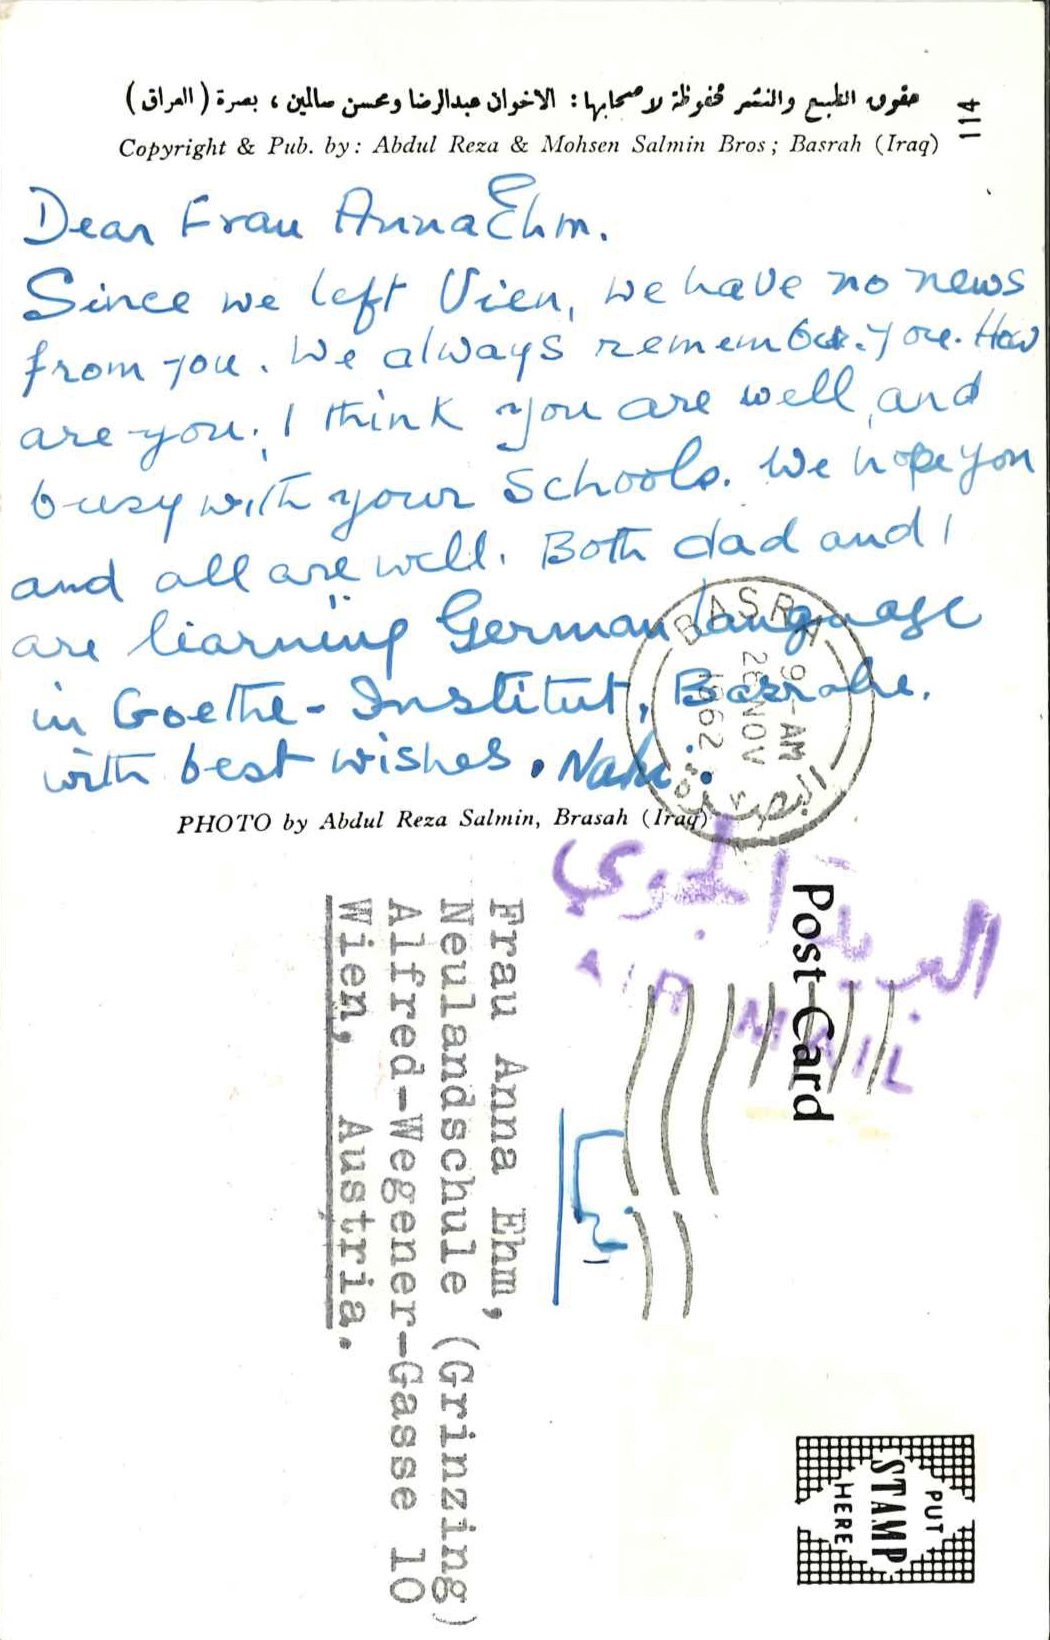 حقوق الطبع والنشر محفوظة لاصحابها: الاخوان عبدالرضا ومحسن سالمين ، بصرة (العراق)
Copyright & Pub. by: Abdul Reza & Mohsen Salmin Bros; Basrah (Iraq)
114
Dear Frau Anna Ehm.
Since we left Vien, we have no news
from you. We always remember you. How
are you. I think you are well, and
busy with your Schools. We hope you
and all are well. Both dad and I
are liarning German language
in Goethe-Institut, Basrahe.
with best wishes.
PHOTO by Abdul Reza Salmin, Brasah (Iraq)
BASRA
9-AM
26 NOV
1962
البصرة
البريد الجوي
AIR MAIL
Post Card
Frau Anna Ehm,
Neulandschule (Grinzing)
Alfred-Wegener-Gasse 10
Wien, Austria.
PUT
STAMP
HERE